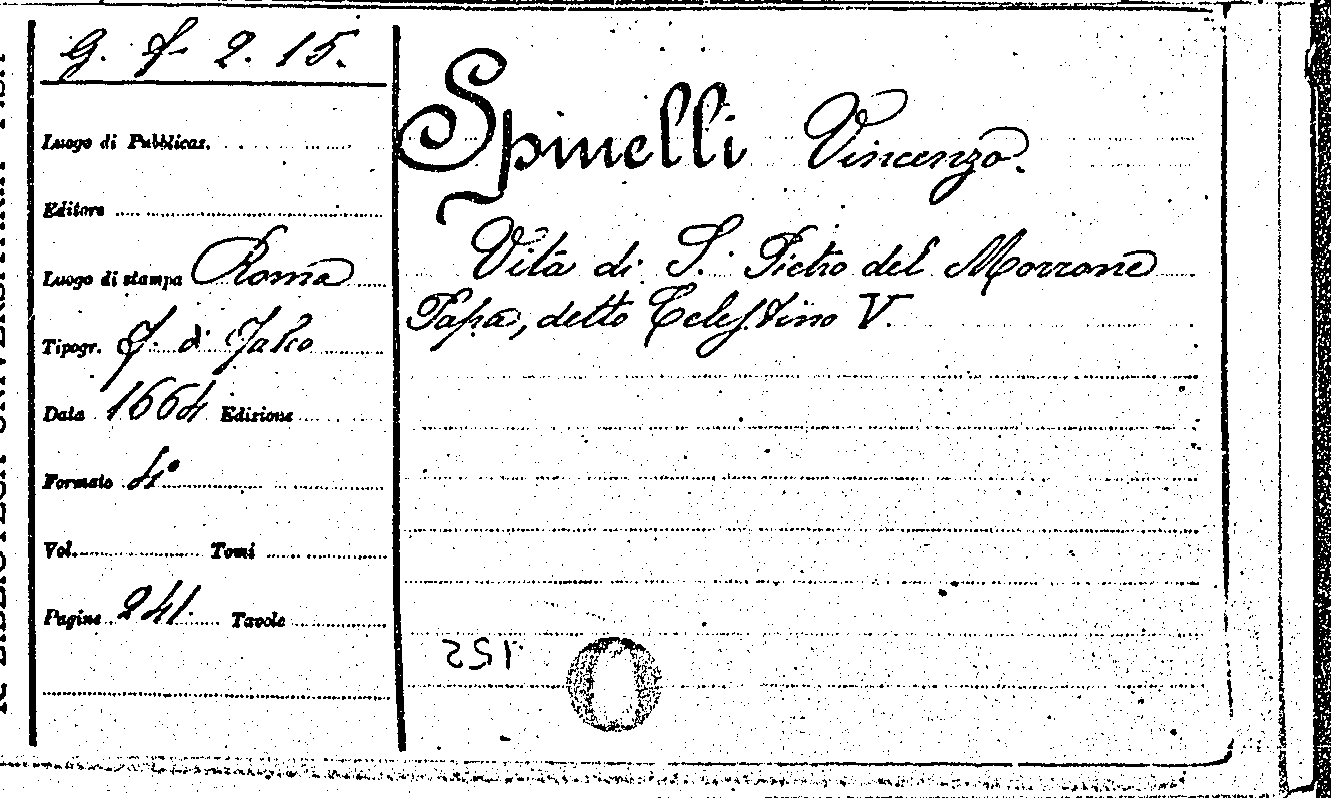 G. f. 2. 15.
Luogo di Pubblicaz.
Editore
Luogo di stampa Roma
Tipogr. F. di Falco
Data 1664 Edizione
Formato 4°
Vol. Tomi
Pagine 241. Tavole
Spinelli Vincenzo.
Vita di S. Pietro del Morrone
Papa, detto Celestino V.
152